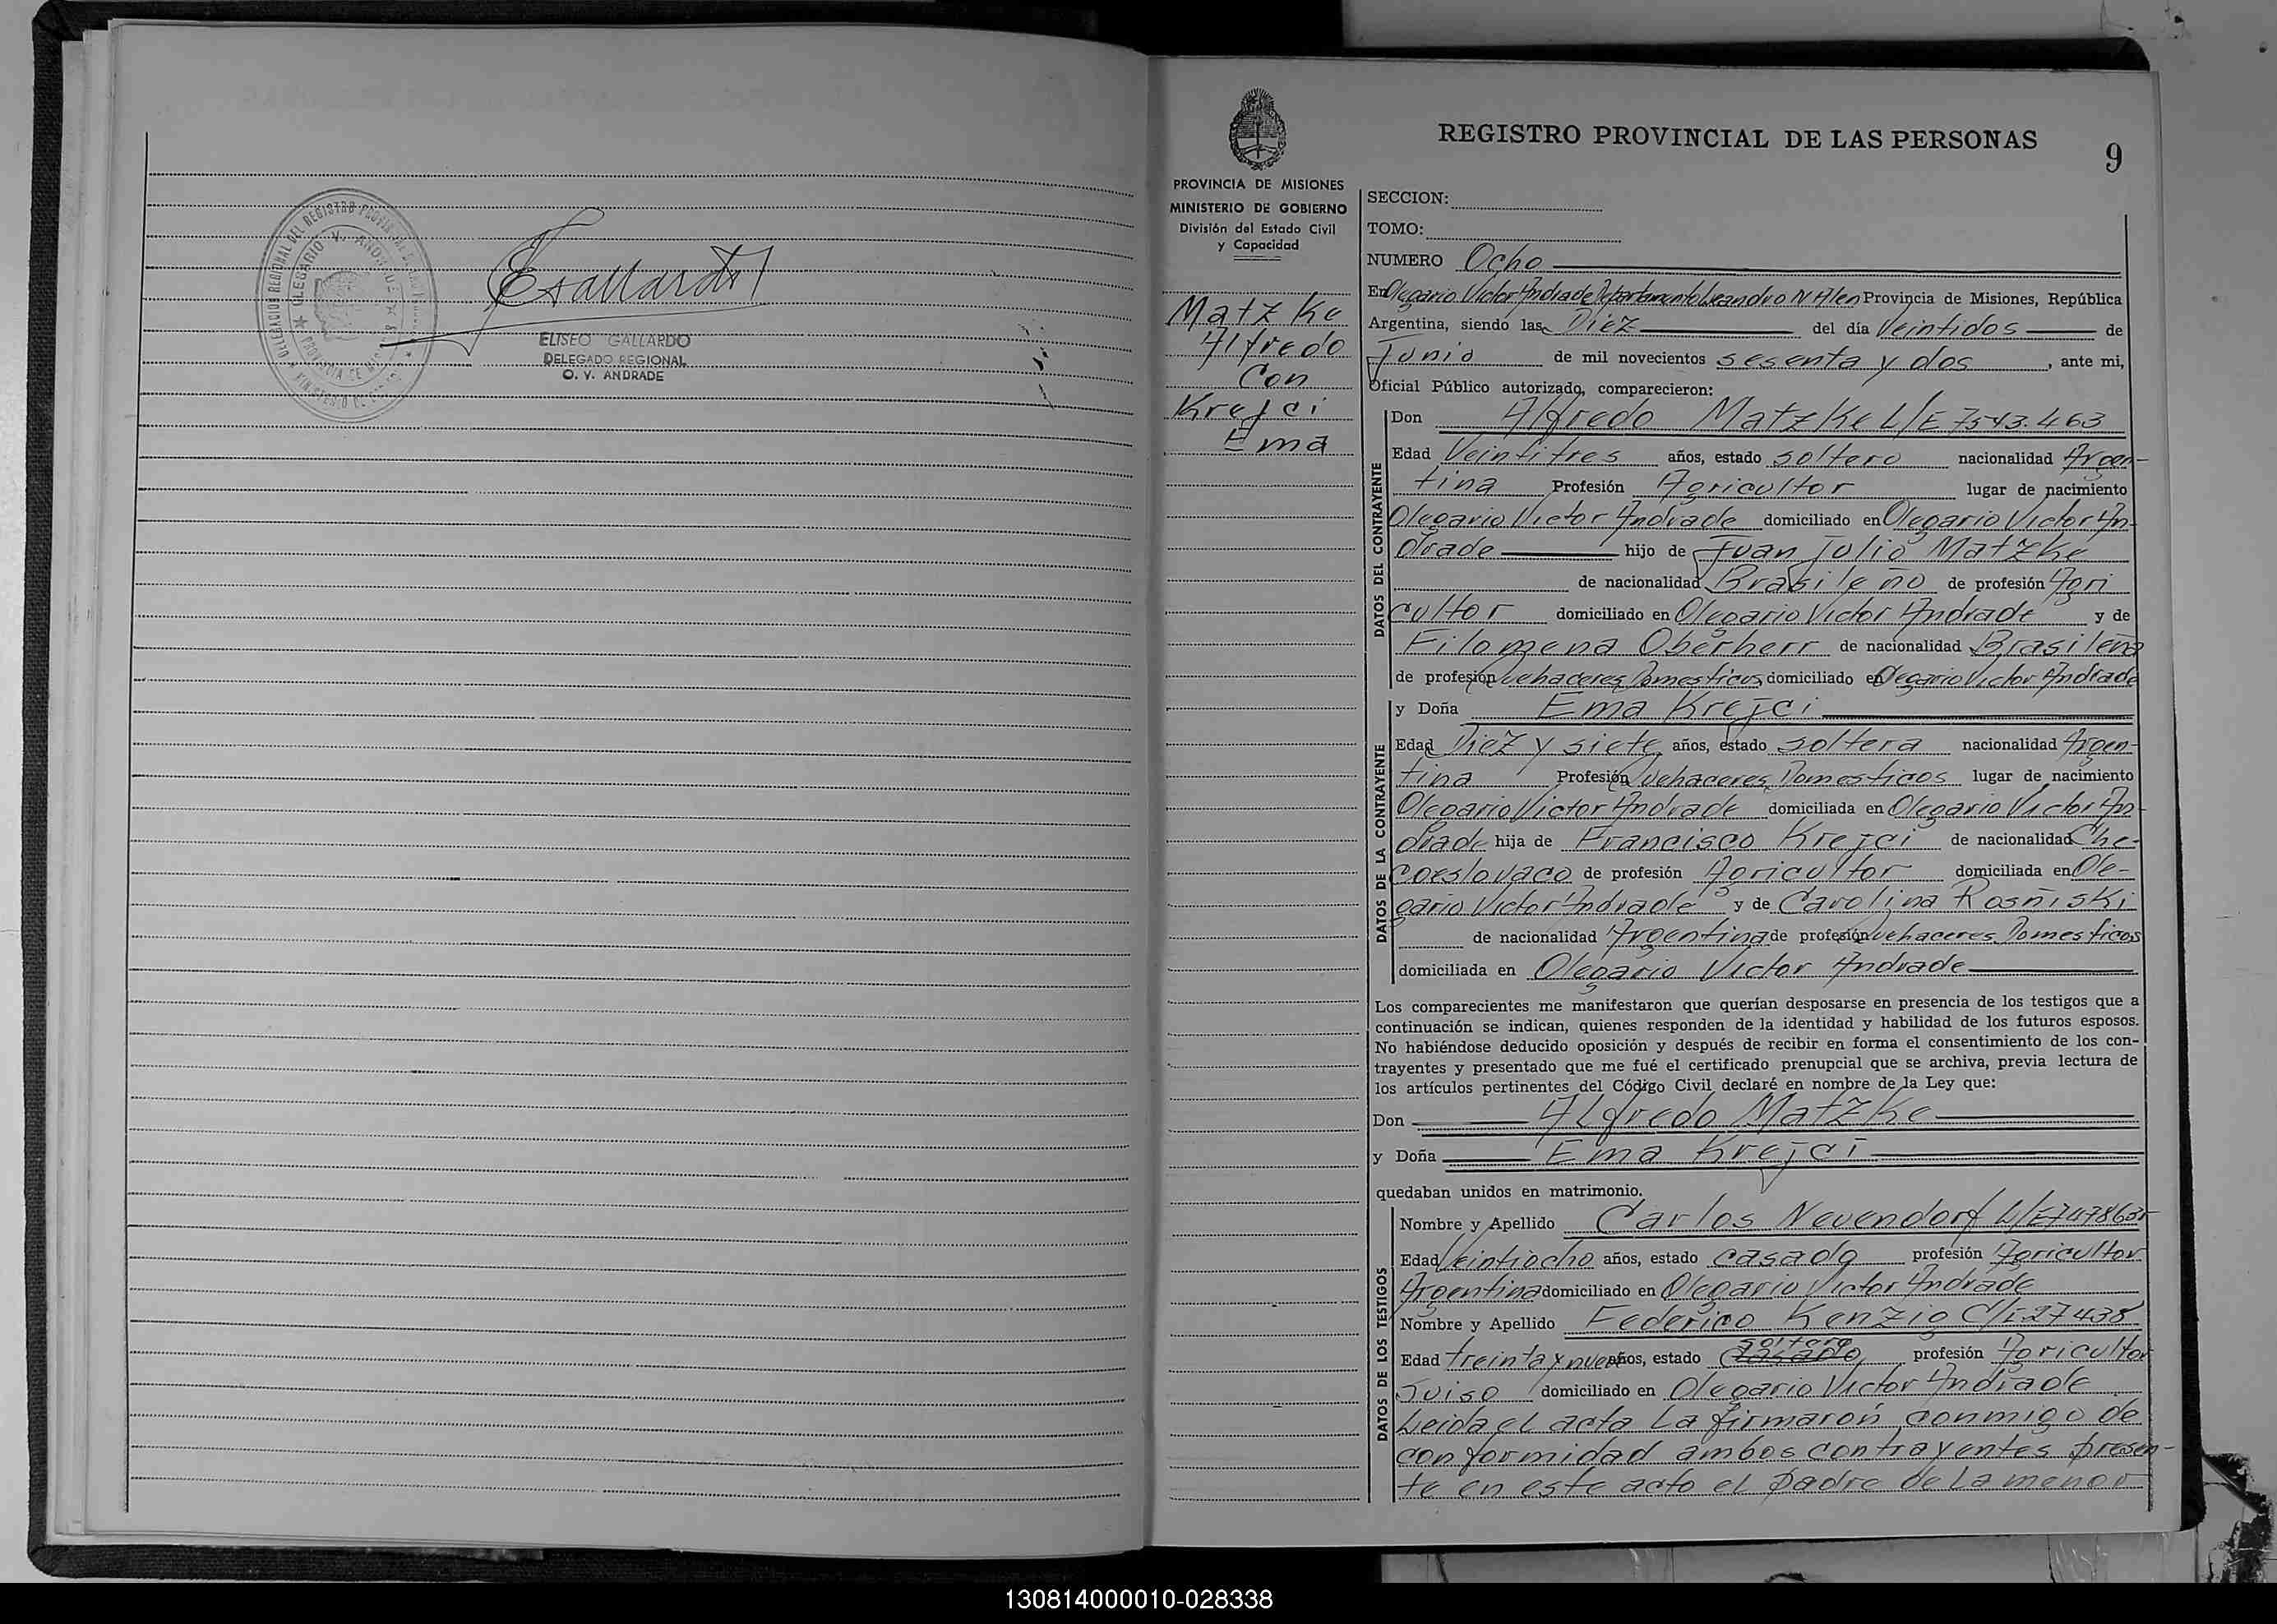 DELEGACION REGIONAL DEL REGISTRO
OLEGARIO V. ANDRADE
EGallardo
ELISEO GALLARDO
DELEGADO REGIONAL
O. V. ANDRADE
REGISTRO PROVINCIAL DE LAS PERSONAS
9
PROVINCIA DE MISIONES
MINISTERIO DE GOBIERNO
División del Estado Civil
y Capacidad
Matzke
Alfredo
Con
Krejci
Ema
SECCION:
TOMO:
NUMERO Ocho
En Olegario Victor Andrade Departamento Leandro N Alen Provincia de Misiones, República
Argentina, siendo las Diez del día Veintidos de
Junio de mil novecientos sesenta y dos, ante mi,
Oficial Público autorizado, comparecieron:
DATOS DEL CONTRAYENTE
Don Alfredo Matzke L/E 7543.463
Edad Veintitres años, estado soltero nacionalidad Argen-
tina Profesión Agricultor lugar de nacimiento
Olegario Victor Andrade domiciliado en Olegario Victor An-
drade hijo de Juan Julio Matzke
de nacionalidad Brasileño de profesión Agri
cultor domiciliado en Olegario Victor Andrade y de
Filomena Oberherr de nacionalidad Brasileña
de profesión Quehaceres Domesticos domiciliado en Olegario Victor Andrade
DATOS DE LA CONTRAYENTE
y Doña Ema Krejci
Edad Diez y siete años, estado soltera nacionalidad Argen-
tina Profesión Quehaceres Domesticos lugar de nacimiento
Olegario Victor Andrade domiciliada en Olegario Victor An-
drade hija de Francisco Krejci de nacionalidad Che-
coeslovaco de profesión Agricultor domiciliada en Ole-
gario Victor Andrade y de Carolina Rosñiski
de nacionalidad Argentina de profesión Quehaceres Domesticos
domiciliada en Olegario Victor Andrade
Los comparecientes me manifestaron que querían desposarse en presencia de los testigos que a
continuación se indican, quienes responden de la identidad y habilidad de los futuros esposos.
No habiéndose deducido oposición y después de recibir en forma el consentimiento de los con-
trayentes y presentado que me fué el certificado prenupcial que se archiva, previa lectura de
los artículos pertinentes del Código Civil declaré en nombre de la Ley que:
Don Alfredo Matzke
y Doña Ema Krejci
quedaban unidos en matrimonio.
DATOS DE LOS TESTIGOS
Nombre y Apellido Carlos Nevendorf L/E
Edad Veintiocho años, estado casado profesión Agricultor
Argentino domiciliado en Olegario Victor Andrade
Nombre y Apellido Federico Kenzig C/I 27435
soltero
Edad treinta y nueve años, estado casado profesión Agricultor
Suiso domiciliado en Olegario Victor Andrade
Leida el acta La firmaron conmigo de
conformidad ambos contrayentes presen-
te en este acto el padre de La menor
130814000010-028338